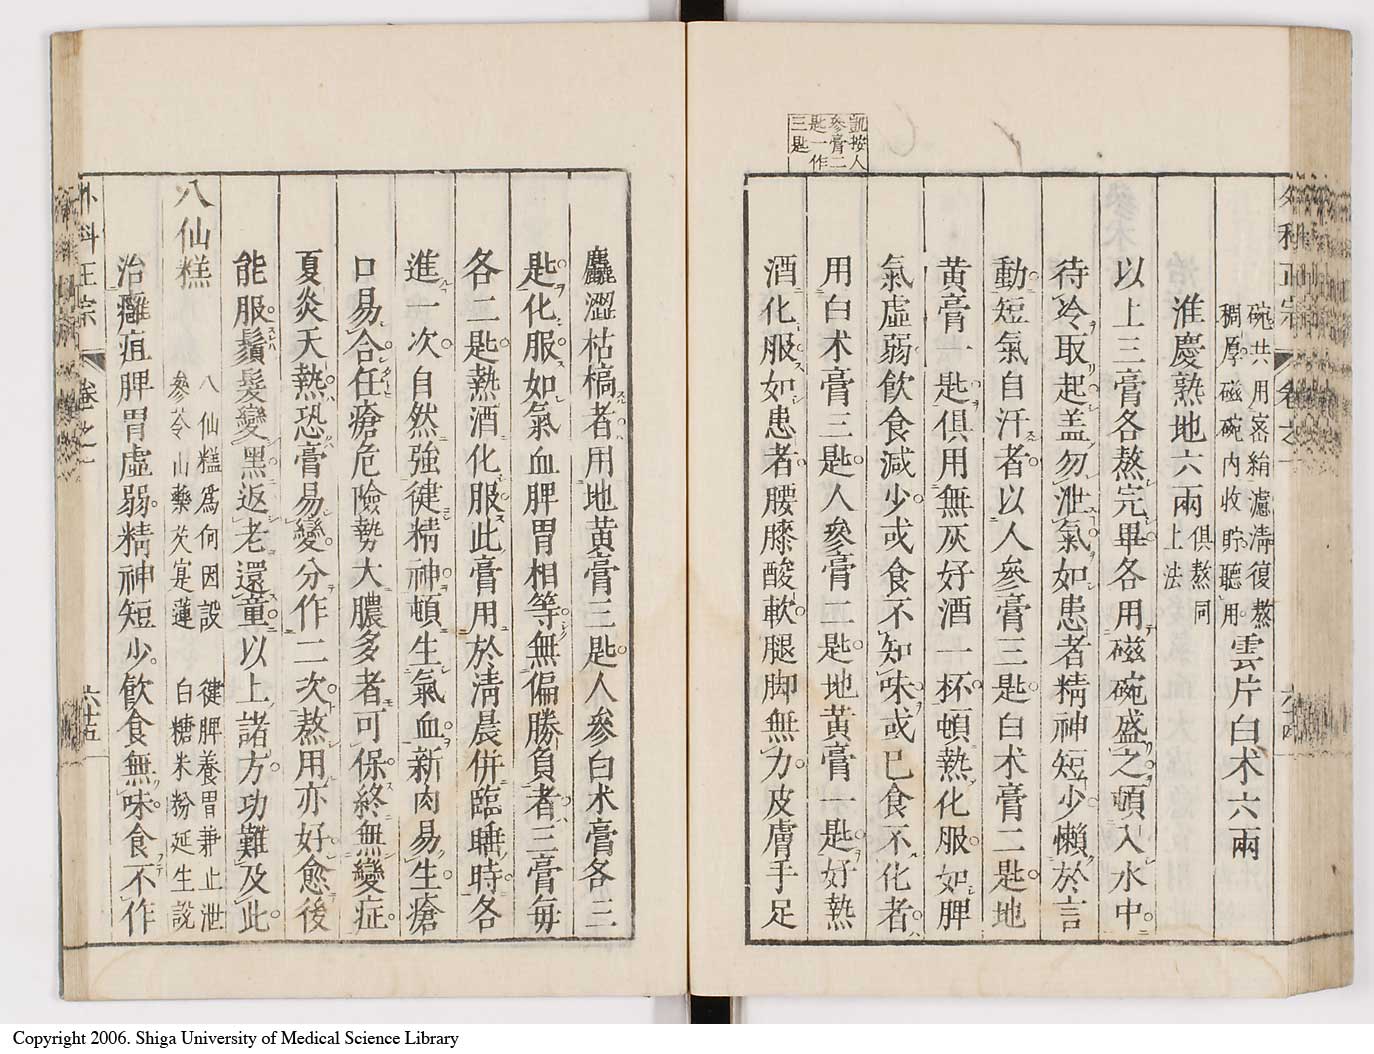 凱按人
參膏二
匙一作
三匙
外科正宗 卷之一 六十四
碗共用密絹濾清復熬
稠厚磁碗內收貯聽用
雲片白朮六兩
淮慶熟地六兩
俱熬同
上法
以上三膏各熬完畢各用磁碗盛之頓入水中
待冷取起盖勿泄氣如患者精神短少懶於言
動短氣自汗者以人參膏三匙白朮膏二匙地
黄膏一匙俱用無灰好酒一杯頓熱化服如脾
氣虛弱飮食減少或食不知味或已食不化者
用白朮膏三匙人參膏二匙地黄膏一匙好熱
酒化服如患者腰膝酸軟腿脚無力皮膚手足
麤澀枯槁者用地黄膏三匙人參白朮膏各三
匙化服如氣血脾胃相等無偏勝負者三膏每
各二匙熱酒化服此膏用於淸晨併臨睡時各
進一次自然強健精神頓生氣血新肉易生瘡
口易合任瘡危險勢大膿多者可保終無變症
夏炎天熱恐膏易變分作二次熬用亦好愈後
能服鬚髮變黑返老還童以上諸方功難及此
八仙糕
八仙糕爲何因設 健脾養胃兼止泄
參苓山藥芡寔蓮 白糖米粉延生說
治癰疽脾胃虛弱精神短少飮食無味食不作
外科正宗 卷之一 六十五
Copyright 2006. Shiga University of Medical Science Library